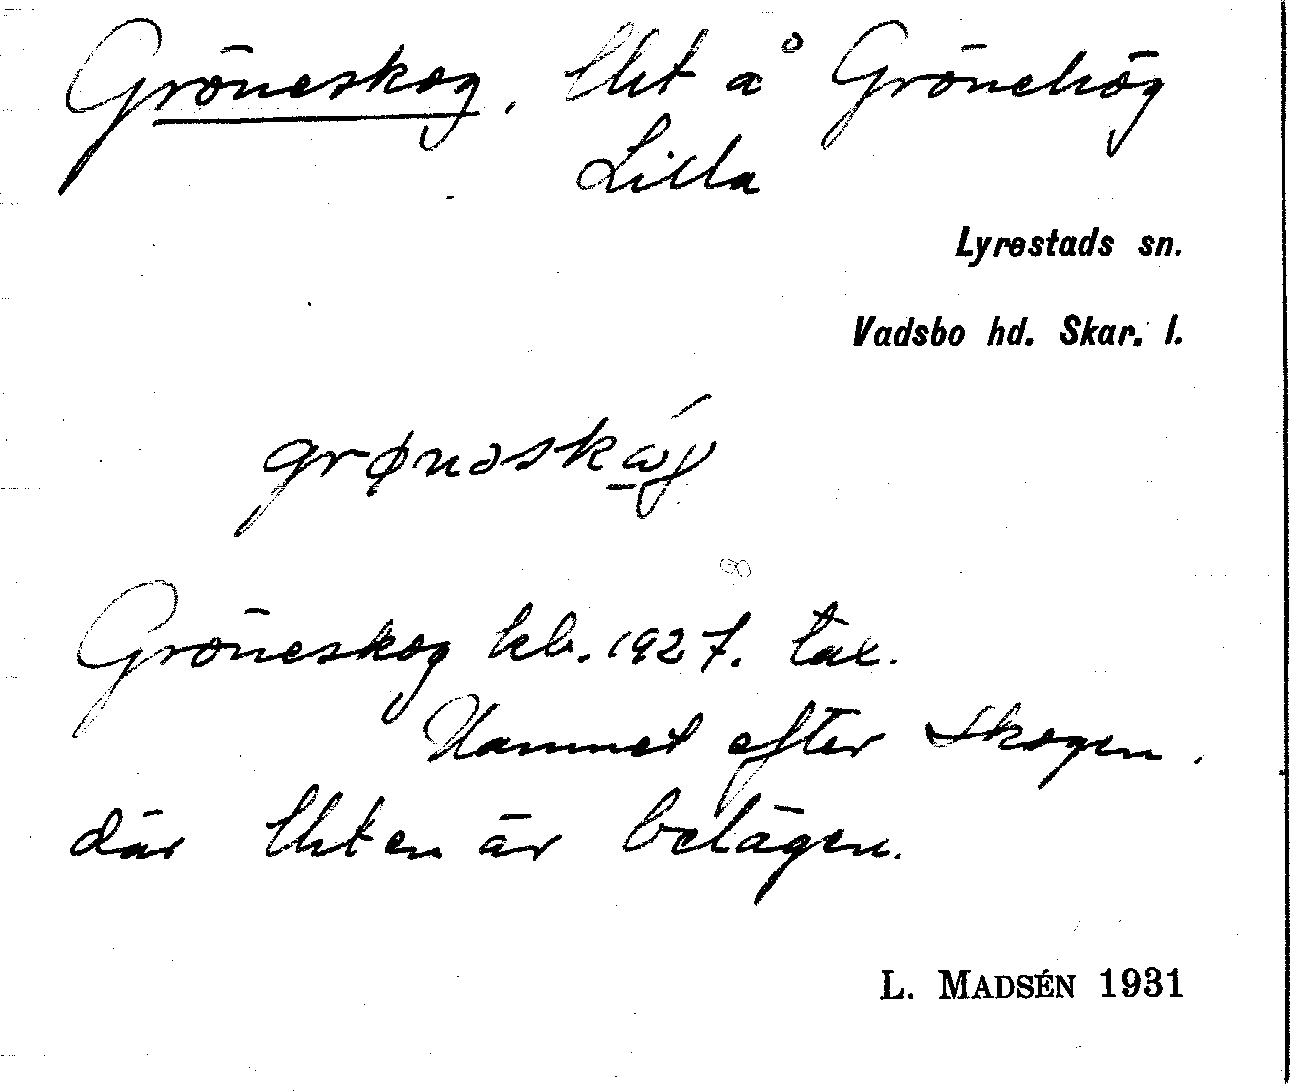 Gröneskog. lht å Grönehög
Lilla
Lyrestads sn.
Vadsbo hd. Skar. l.
Gröneskog kb. 1927. tal.
Namnet efter skogen,
där lhten är belägen.
L. MADSÉN 1931